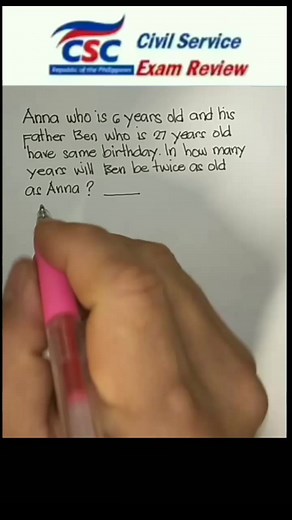 CSC
Republic of the Philippines
Civil Service
Exam Review
Anna who is 6 years old and his
Father Ben who is 27 years old
have same birthday. In how many
years will Ben be twice as old
as Anna ?